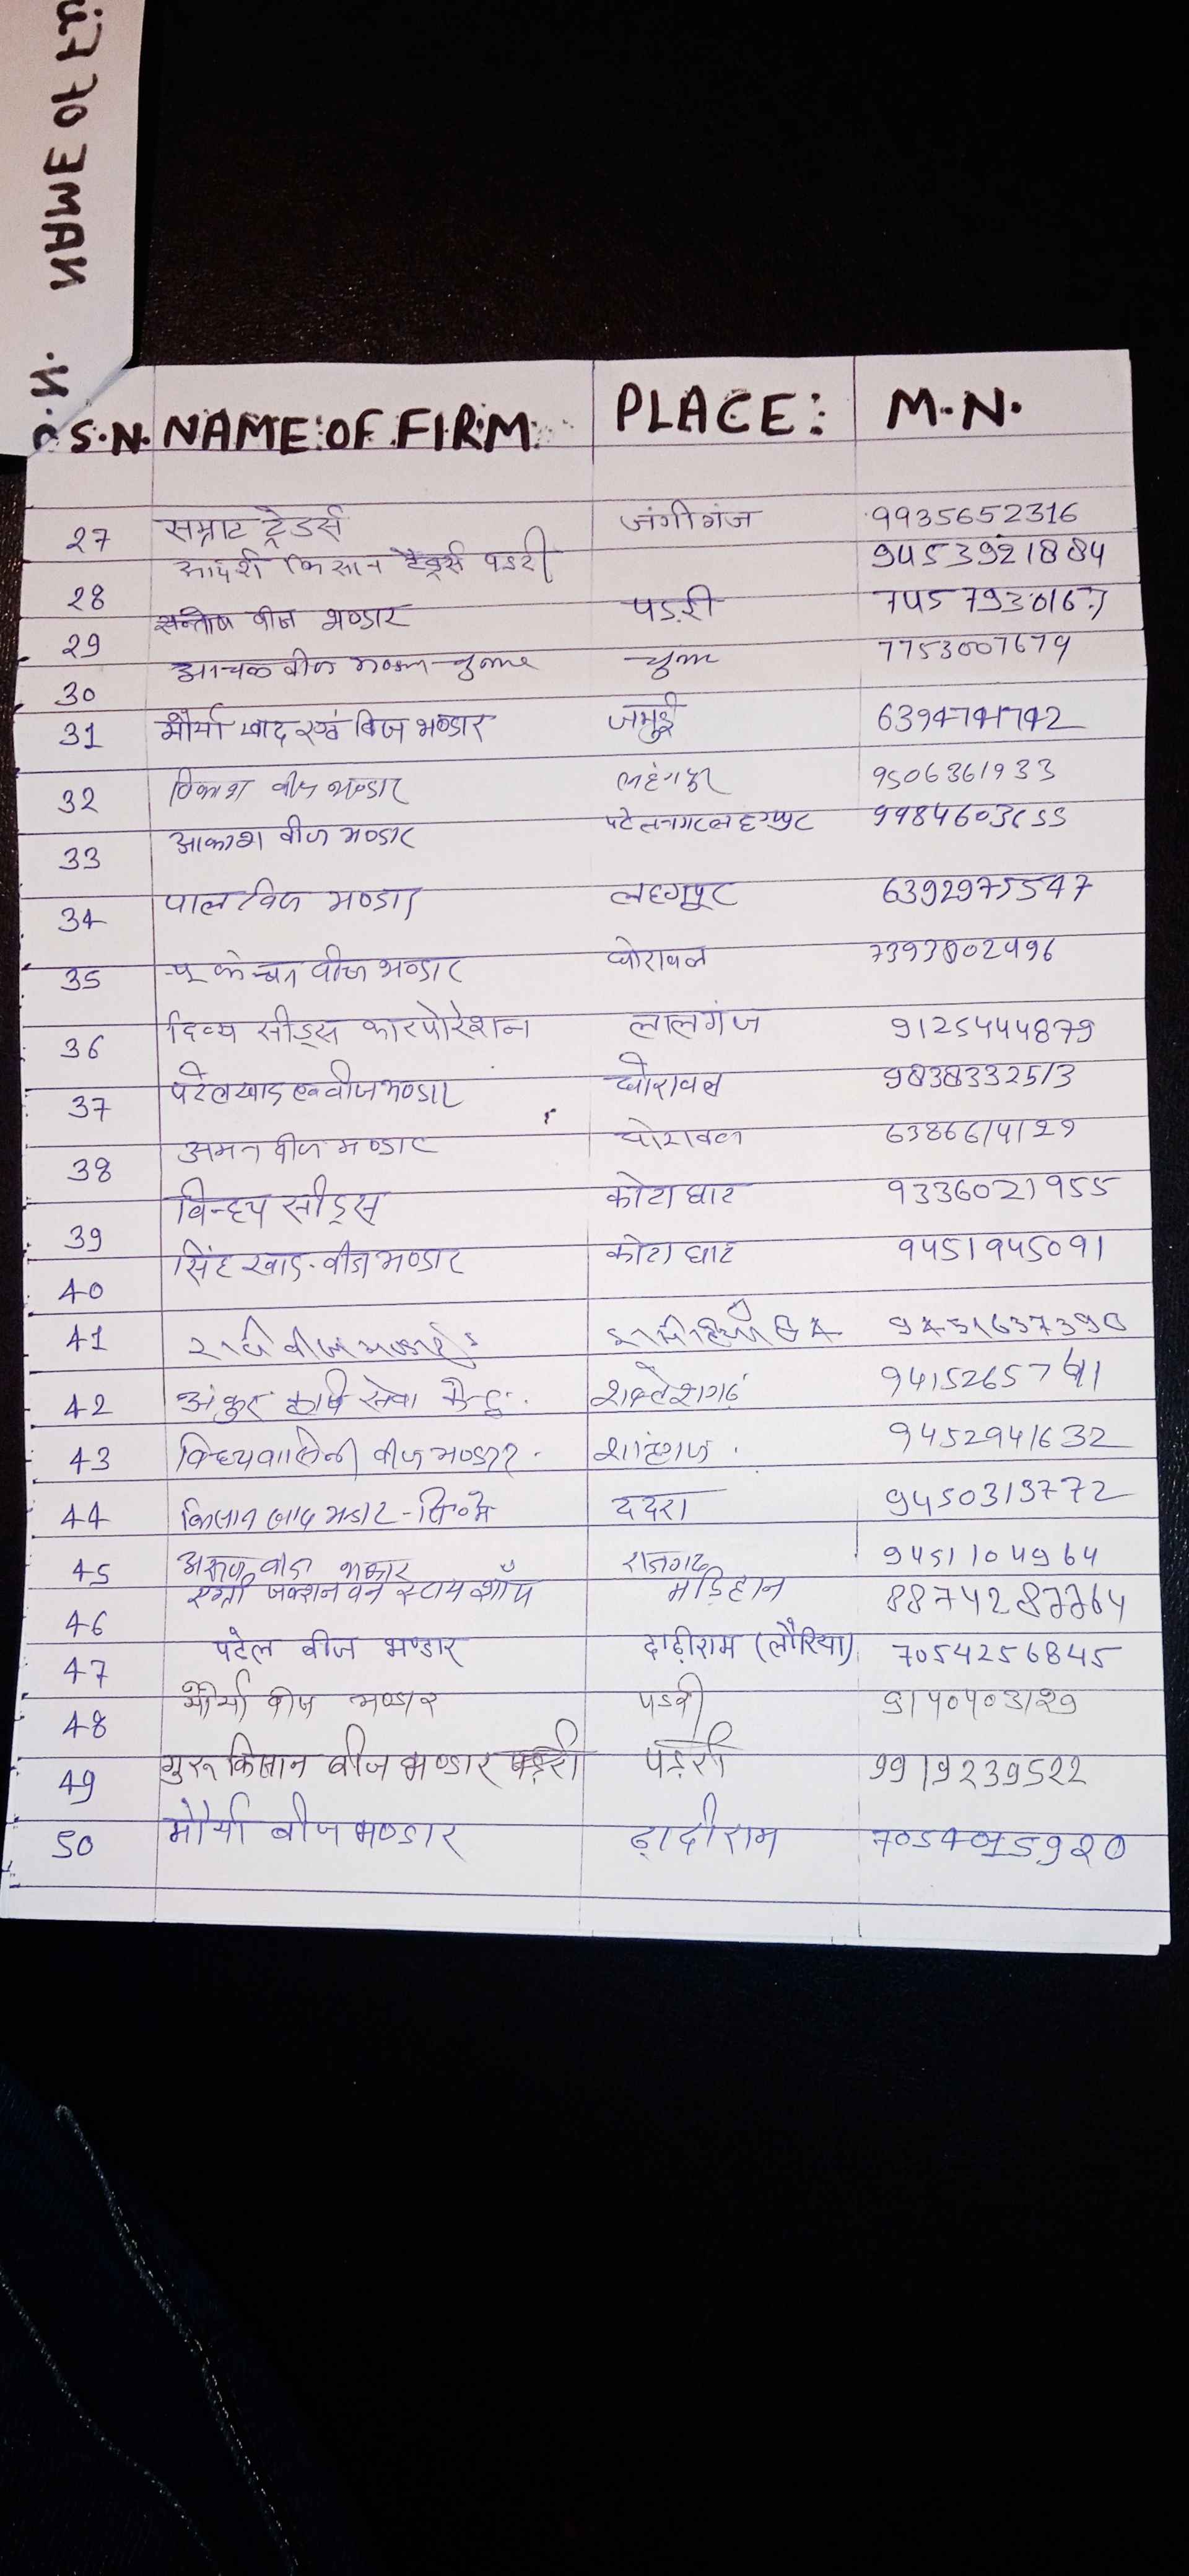 NAME OF
S.N. NAME OF FIRM PLACE: M.N.
27 सम्राट ट्रेडर्स जंगीगंज 9935652316
28 आदर्श किसान ट्रेडर्स पडरी 9453921884
29 सन्तोष बीज भण्डार पड़री 7457930167
30 7753007679
31 मौर्या खाद एवं बिज भण्डार जमुई 6394741742
32 विकाश बीज भण्डार 9506361933
33 आकाश बीज भण्डार
34 पाल विज भण्डार लहगपुर 6392975547
35 बीज भण्डार घोरावल 7393802496
36 दिव्य सीड्स कारपोरेशन लालगंज 9125444879
37 पटेल खाद एवं बीज भण्डार घोरावल 9838332513
38 अमन बीज भण्डार घोरावल 6386614129
39 विन्ध्य सीड्स कोटाघाट 9336021955
40 सिंह खाद-बीज भण्डार कोटा घाट 9451945091
41 बीज भण्डार
42 अंकुर कृषि सेवा केन्द्र. शक्तेशगढ़
43 विंध्यवासिनी बीज भण्डार. 9452941632
44 किसान खाद भंडार ददरा 9450313772
45 अरूण बीज भण्डार राजगढ़ 9451104964
46 एग्री जंक्शन वन स्टाप शॉप मडिहान
47 पटेल बीज भण्डार दाढ़ीराम (लौरिया) 7054256845
48 मौर्या बीज भण्डार पडरी 9140403129
49 गुरू किसान बीज भण्डार पड़री पड़री 9919239522
50 मौर्या बीज भण्डार ढ़ादीराम